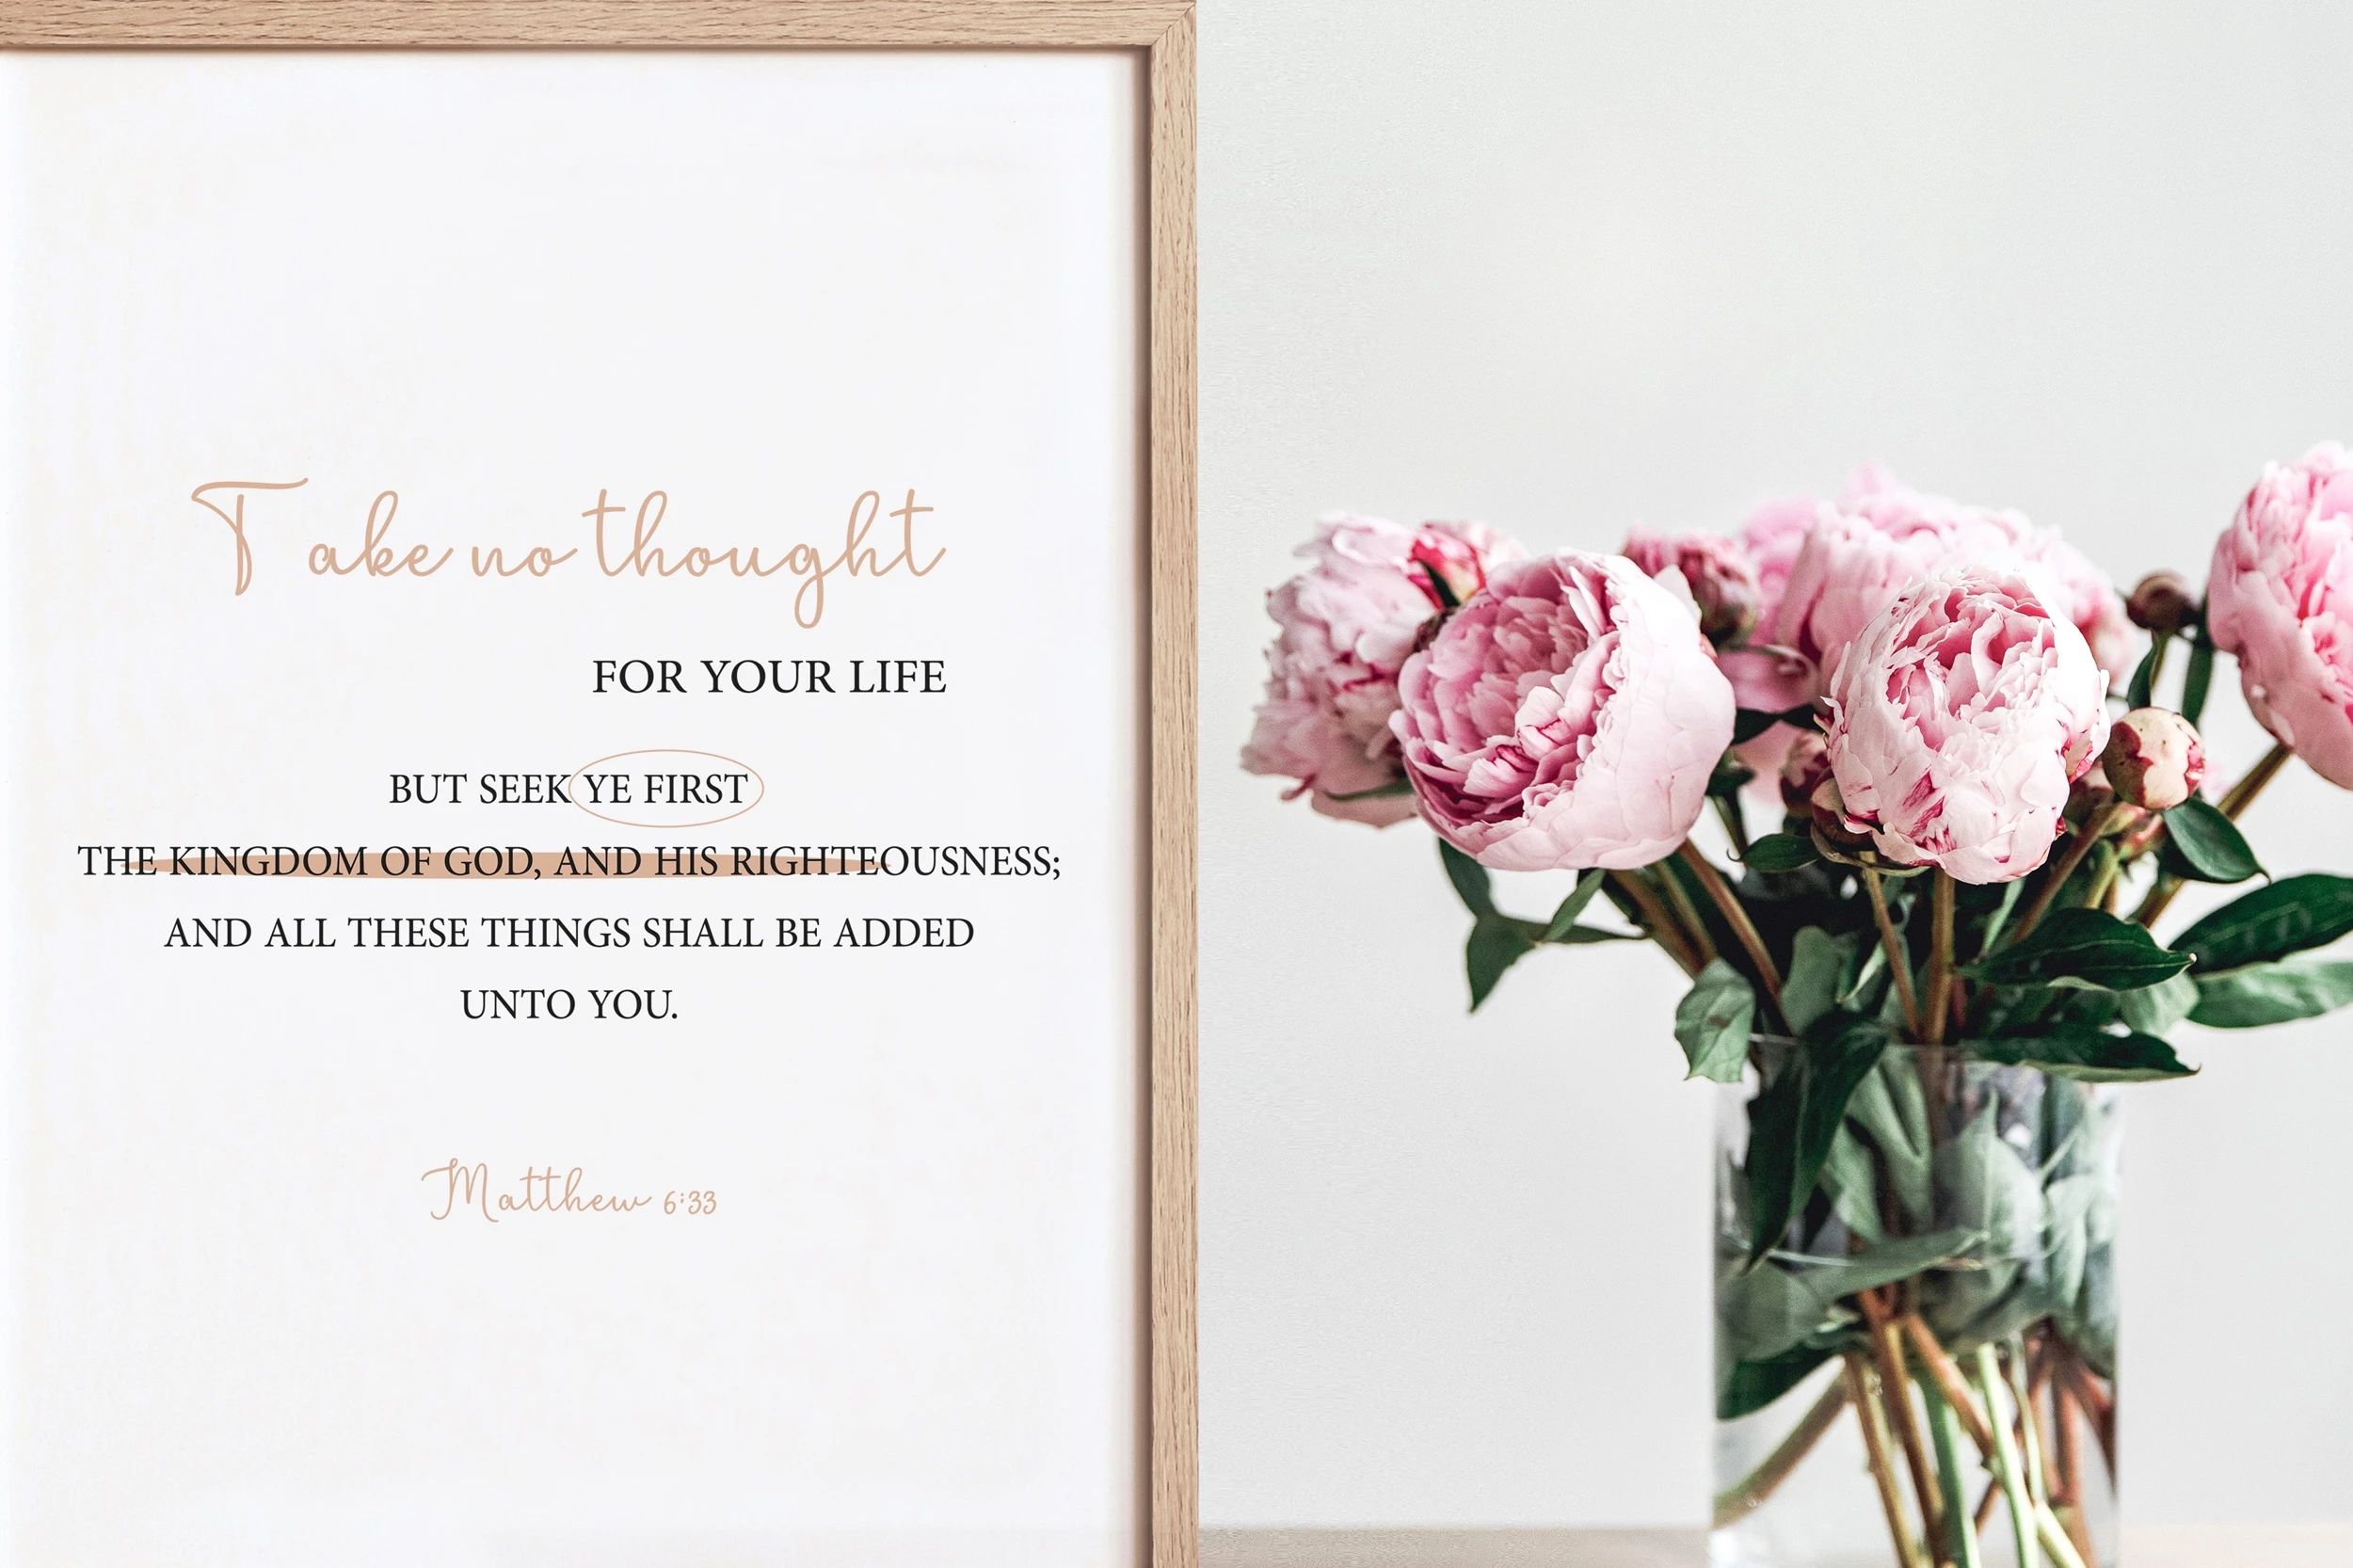 Take no thought
FOR YOUR LIFE
BUT SEEK YE FIRST
THE KINGDOM OF GOD, AND HIS RIGHTEOUSNESS;
AND ALL THESE THINGS SHALL BE ADDED
UNTO YOU.
Matthew 6:33